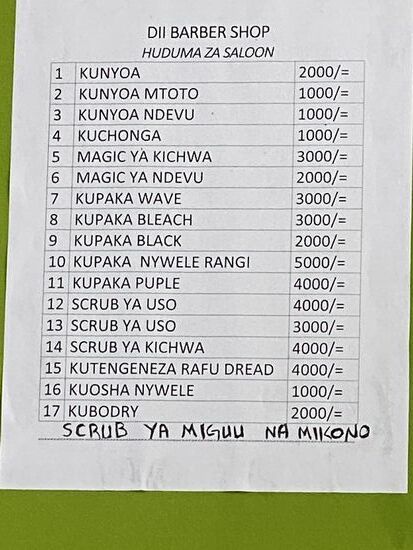 DII BARBER SHOP
HUDUMA ZA SALOON
1 KUNYOA 2000/=
2 KUNYOA MTOTO 1000/=
3 KUNYOA NDEVU 1000/=
4 KUCHONGA 1000/=
5 MAGIC YA KICHWA 3000/=
6 MAGIC YA NDEVU 2000/=
7 KUPAKA WAVE 3000/=
8 KUPAKA BLEACH 3000/=
9 KUPAKA BLACK 2000/=
10 KUPAKA NYWELE RANGI 5000/=
11 KUPAKA PUPLE 4000/=
12 SCRUB YA USO 4000/=
13 SCRUB YA USO 3000/=
14 SCRUB YA KICHWA 4000/=
15 KUTENGENEZA RAFU DREAD 4000/=
16 KUOSHA NYWELE 1000/=
17 KUBODRY 2000/=
SCRUB YA MIGUU NA MIKONO